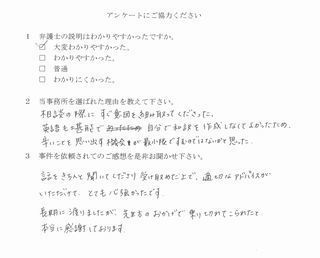 アンケートにご協力ください
1 弁護士の説明はわかりやすかったですか。
☑ 大変わかりやすかった。
□ わかりやすかった。
□ 普通
□ わかりにくかった。
2 当事務所を選ばれた理由を教えて下さい。
相談の際に すぐ意図をお汲み取ってくださった。
英語も堪能で 自分で和訳を作成しなくてよかったため、
辛いことを思い出す機会が最小限ですむのではないかと思った。
3 事件を依頼されてのご感想を是非お聞かせ下さい。
話をきちんと聞いてくださり 受け止めた上で、適切なアドバイスが
いただけて、とても心強かったです。
長期に渡りましたが、先生方のおかげで乗り切れてこられたと
本当に感謝しております。